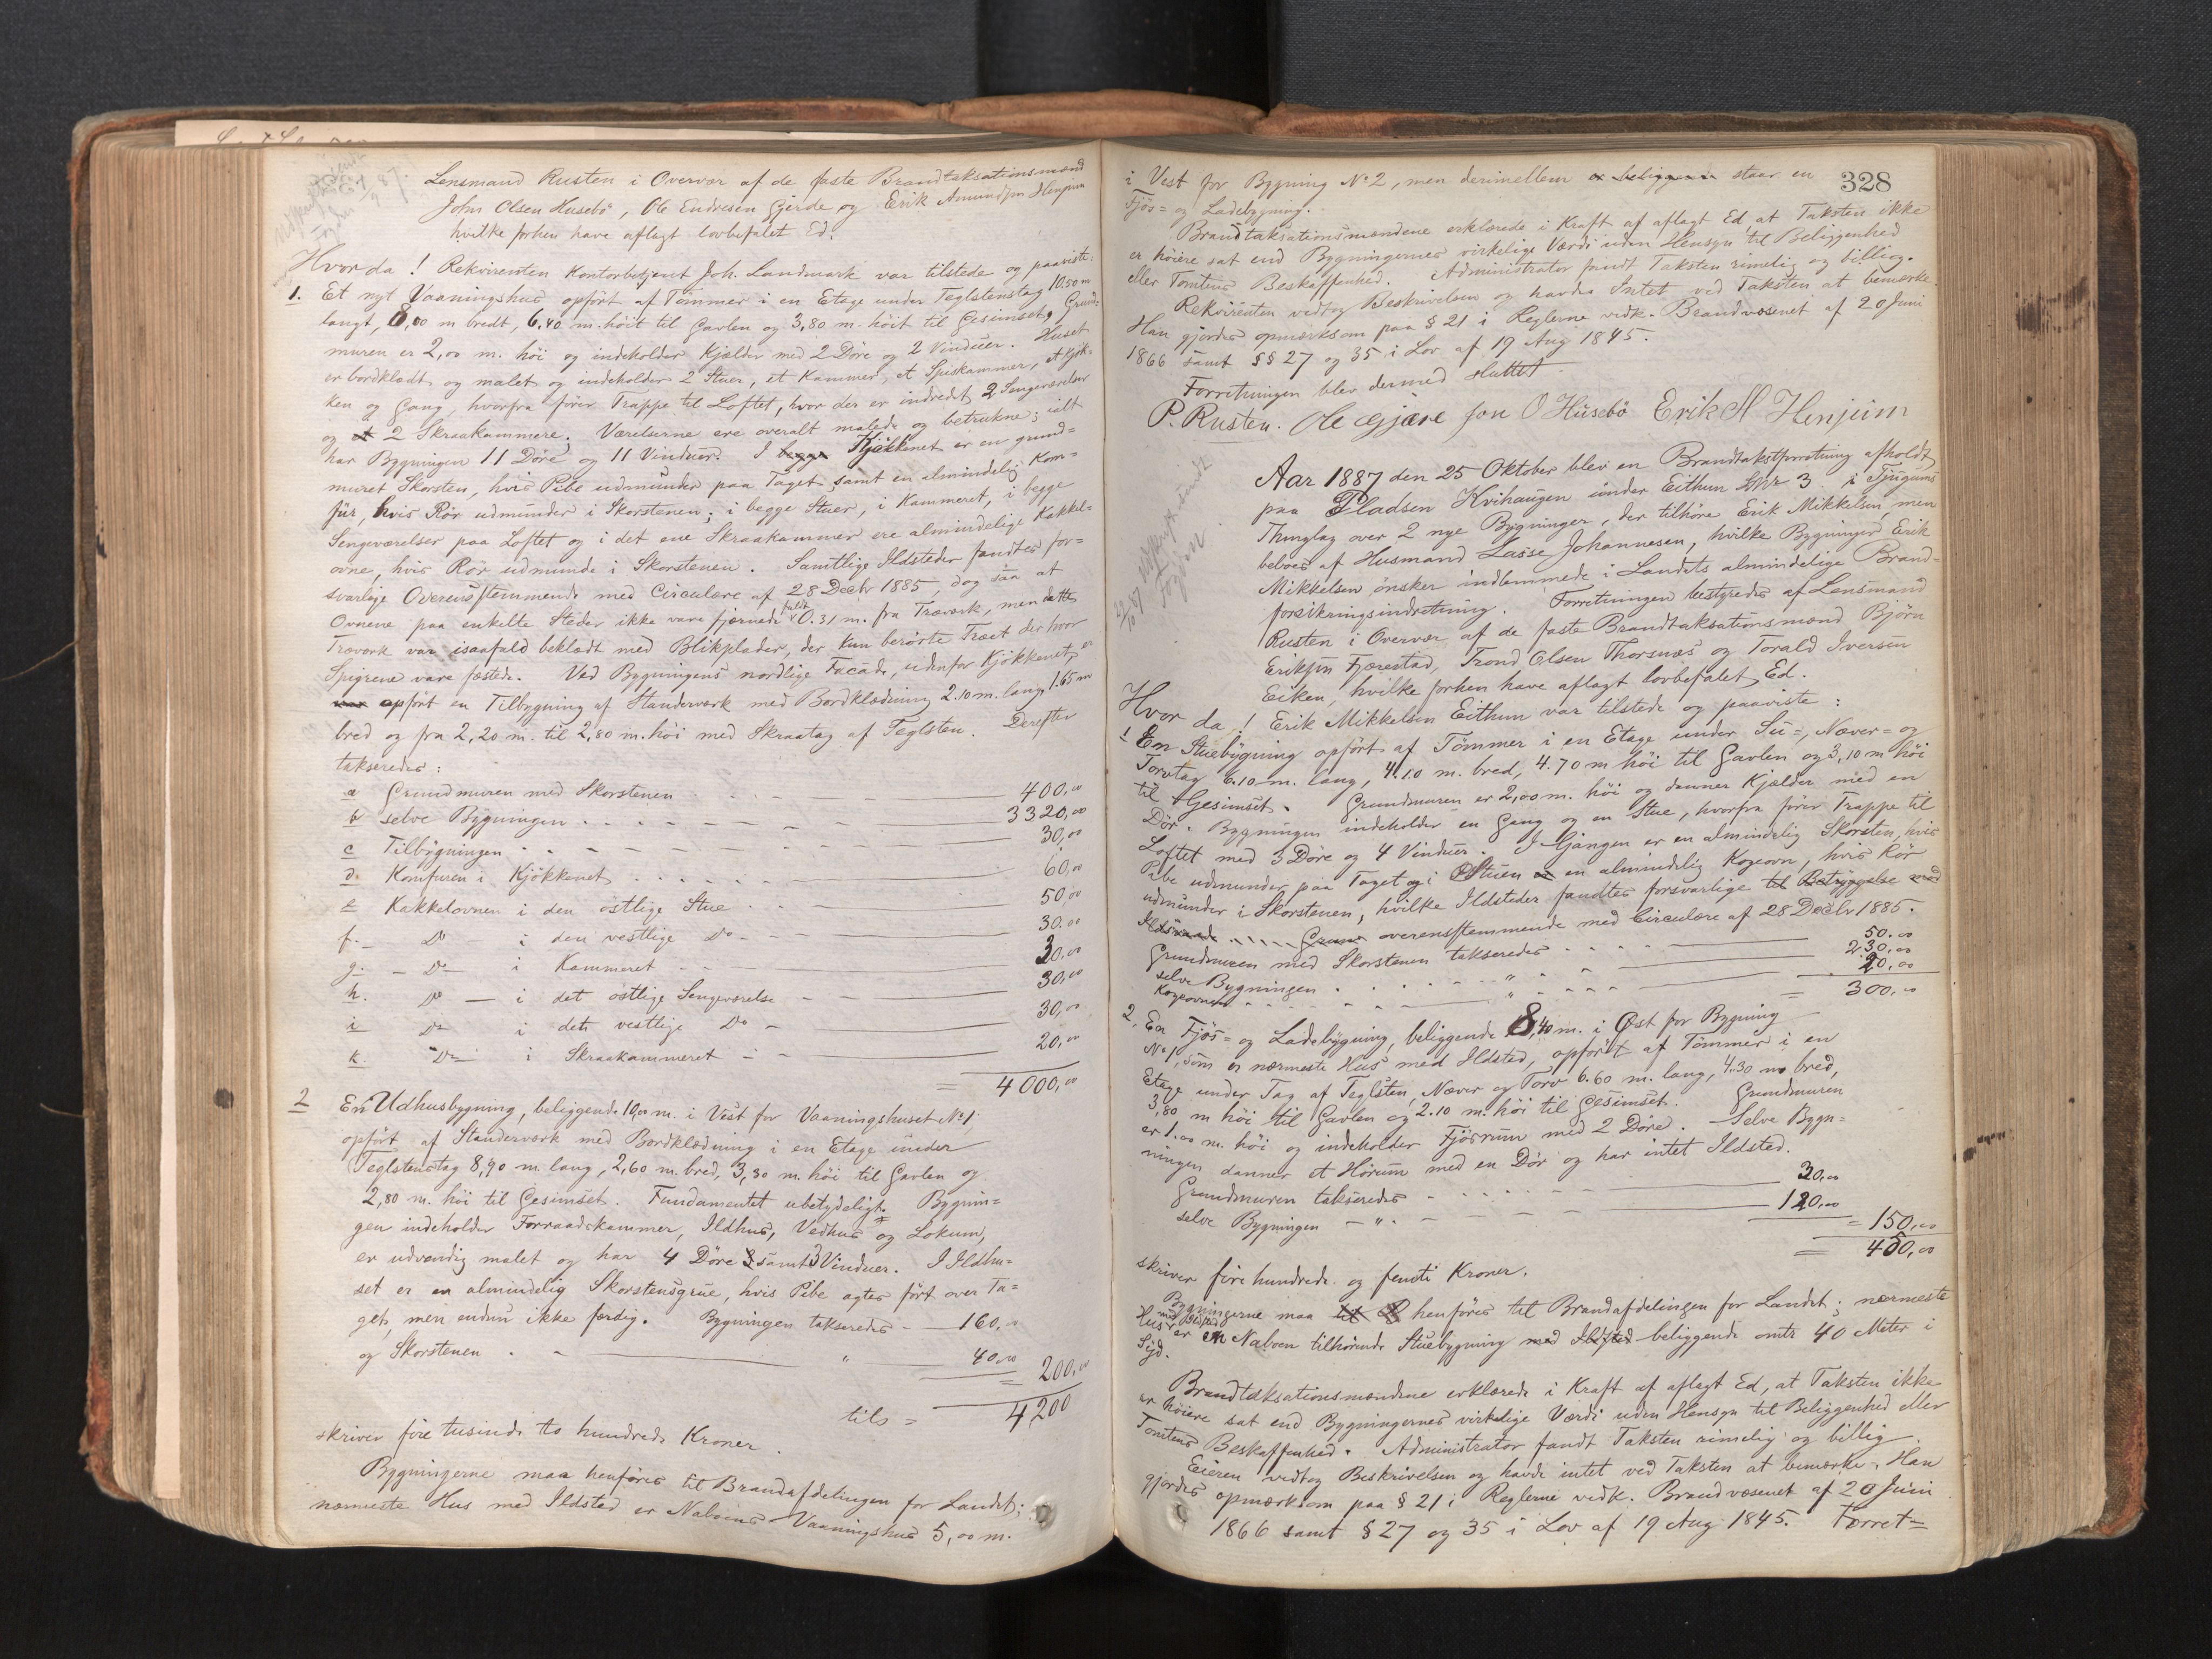 Lensmand Rusten i Overvær af de faste Brandtaksationsmænd
John Olsen Husebö, Ole Endresen Gjerde og Erik Amundsen Henjum
hvilke forhen have aflagt lovbefalet Ed.
Hvor da! Rekvirenten Kontorbetjent Joh. Landmark var tilstede og paaviste:
1. Et nyt Vaaningshus opfört af Tömmer i en Etage under Teglstenstag 10.50 m
langt, 8,00 m bredt, 6,40 m. höit til Gavlen og 3,80 m. höit til Gesimset, Grund=
muren er 2,00 m. höi og indeholder Kjælder med 2 Döre og 2 Vinduer. Huset
er bordklædt og malet og indeholder 2 Stuer, et Kammer, et Spiskammer, et Kjök=
ken og Gang, hvorfra förer Trappe til Loftet, hvor der er indredet 2 Sengeværelser
og 2 Skraakammere; Værelserne ere overalt malede og betrukne; ialt
har Bygningen 11 Döre og 11 Vinduer. I begge Kjökkenet er en grund=
muret Skorsten, hvis Pibe udmunder paa Taget samt en almindelig Kom=
für, hvis Rör udmunder i Skorstenen; i begge Stuer, i Kammeret, i begge
Sengeværelser paa Loftet og i det ene Skraakammer ere almindelige Kakkel=
ovne, hvis Rör udmunde i Skorstenen. Samtlige Ildsteder fandtes for=
svarlige Overensstemmende med Circulære af 28 Decbr 1885, dog saa at
Ovnene paa enkelte Steder ikke vare fjernede fuldt 0.31 m. fra Træværk, men dette
Træværk var isaafald beklædt med Blikplader, der kun berörte Træet der hvor
Spigrene vare fæstede. Ved Bygningens nordlige Facade, udenfor Kjökkenet, er
opfört en Tilbygning af Standerværk med Bordklædning 2.10 m. lang, 1.65 m
bred og fra 2,20 m. til 2,80 m. höi med Skraatag af Teglsten. Derefter
takseredes:
a Grundmuren med Skorstenen 400,00
b selve Bygningen 3320,00
c Tilbygningen 30,00
d. Komfuren i Kjökkenet 60,00
e Kakkelovnen i den östlige Stue 50,00
f. Do i den vestlige Do 30.00
g. Do i Kammeret 30.00
h. Do i det östlige Sengeværelse 30,00
i Do i det vestlige Do 30,00
k. Do i Skraakammeret 20,00
= 4000,00
2 En Udhusbygning, beliggende 10,00 m. i Vest for Vaaningshuset No 1,
opfört af Standerværk med Bordklædning i en Etage under
Teglstenstag 8,90 m. lang, 2,60 m. bred, 3,30 m. höi til Gavlen og
2,80 m. höi til Gesimset. Fundamentet ubetydeligt. Bygnin=
gen indeholder Forraadskammer, Ildhus, Vedhus og Lokum,
er udvendig malet og har 4 Döre samt 3 Vinduer. I Ildhu=
set er en almindelig Skorstensgrue, hvis Pibe agtes fört over Ta=
get, men endnu ikke færdig. Bygningen takseredes 160,00
og Skorstenen " 40,00
= 200,00
tils = 4200
skriver fire tusinde to hundrede Kroner.
Bygningerne maa henföres til Brandafdelingen for Landet;
nærmeste Hus med Ildsted er Naboens Vaaningshus 5,00 m.
328
i Vest for Bygning No 2, men derimellem er beliggende staar en
Fjös= og Ladebygning.
Brandtaksationsmændene erklærede i Kraft af aflagt Ed, at Taksten ikke
er höiere sat end Bygningernes virkelige Værdi uden Hensyn til Beliggenhed
eller Tomtens Beskaffenhed. Administrator fandt Taksten rimelig og billig.
Rekvirenten vedtog Beskrivelsen og havde Intet ved Taksten at bemærke.
Han gjordes opmærksom paa § 21 i Reglerne vedk. Brandvæsenet af 20 Juni
1866 samt §§ 27 og 35 i Lov af 19 Aug 1845.
Forretningen blev dermed sluttet
P. Rusten. Ole E Gjære Jon O Húsebö Erik A Henjum
Aar 1887 den 25 Oktober blev en Brandtakstforretning afholdt
paa Pladsen Kvihaugen under Eithun LNr 3 i Tjugums
Thinglag over 2 nye Bygninger, der tilhöre Erik Mikkelsen, men
beboes af Husmand Lasse Johannesen, hvilke Bygninger Erik
Mikkelsen önsker indlemmede i Landets almindelige Brand=
forsikringsindretning. Forretningen bestyredes af Lensmand
Rusten i Overvær af de faste Brandtaksationsmænd Björn
Eriksen Fjærestad, Trond Olsen Thorsnæs og Torald Iversen
Eiken, hvilke forhen have aflagt lovbefalet Ed.
Hvor da! Erik Mikkelsen Eithun var tilstede og paaviste:
1 En Stuebygning opfört af Tömmer i en Etage under Su=, Næver= og
Torvtag 6.10 m. lang, 4.10 m. bred, 4.70 m höi til Gavlen og 3,10 m höi
til Gesimset. Grundmuren er 2,00 m. höi og danner Kjælder med en
Dör. Bygningen indeholder en Gang og en Stue, hvorfra förer Trappe til
Loftet med 3 Döre og 4 Vinduer. I Gangen er en almindelig Skorsten, hvis
Pibe udmunder paa Taget og i Stuen en almindelig Kogeovn, hvis Rör
udmunder i Skorstenen, hvilke Ildsteder fandtes forsvarlige til Betryggelse mod
Ildsvaade overensstemmende med Circulære af 28 Decbr 1885.
Grundmuren med Skorstenen takseredes 50.00
selve Bygningen " 230,00
Kogeovnen " 20,00
= 300,00
2. En Fjös= og Ladebygning, beliggende 8,40 m. i Öst for Bygning
No 1, som er nærmeste Hus med Ildsted, opfört af Tömmer i en
Etage under Tag af Teglsten, Næver og Torv 6.60 m. lang, 4.30 m bred,
3,80 m höi til Gavlen og 2.10 m. höi til Gesimset. Grundmuren
er 1.00 m. höi og indeholder Fjösrum med 2 Döre. Selve Bygn=
ningen danner et Hörum med en Dör og har intet Ildsted.
Grundmuren takseredes 30,00
selve Bygningen " 120,00
= 150,00
= 450,00
skriver fire hundrede og femti Kroner.
Bygningerne maa henföres til Brandafdelingen for Landet; nærmeste
Hus med Ildsted er en Naboen tilhörende Stuebygning med Ildsted beliggende omtr 40 Meter i
Syd.
Brandtaksationsmændene erklærede i Kraft af aflagt Ed, at Taksten ikke
er höiere sat end Bygningernes virkelige Værdi uden Hensyn til Beliggenhed eller
Tomtens Beskaffenhed. Administrator fandt Taksten rimelig og billig.
Eieren vedtog Beskrivelsen og havde intet ved Taksten at bemærke. Han
gjordes opmærksom paa § 21 i Reglerne vedk. Brandvæsenet af 20 Juni
1866 samt § 27 og 35 i Lov af 19 Aug 1845. Forret=